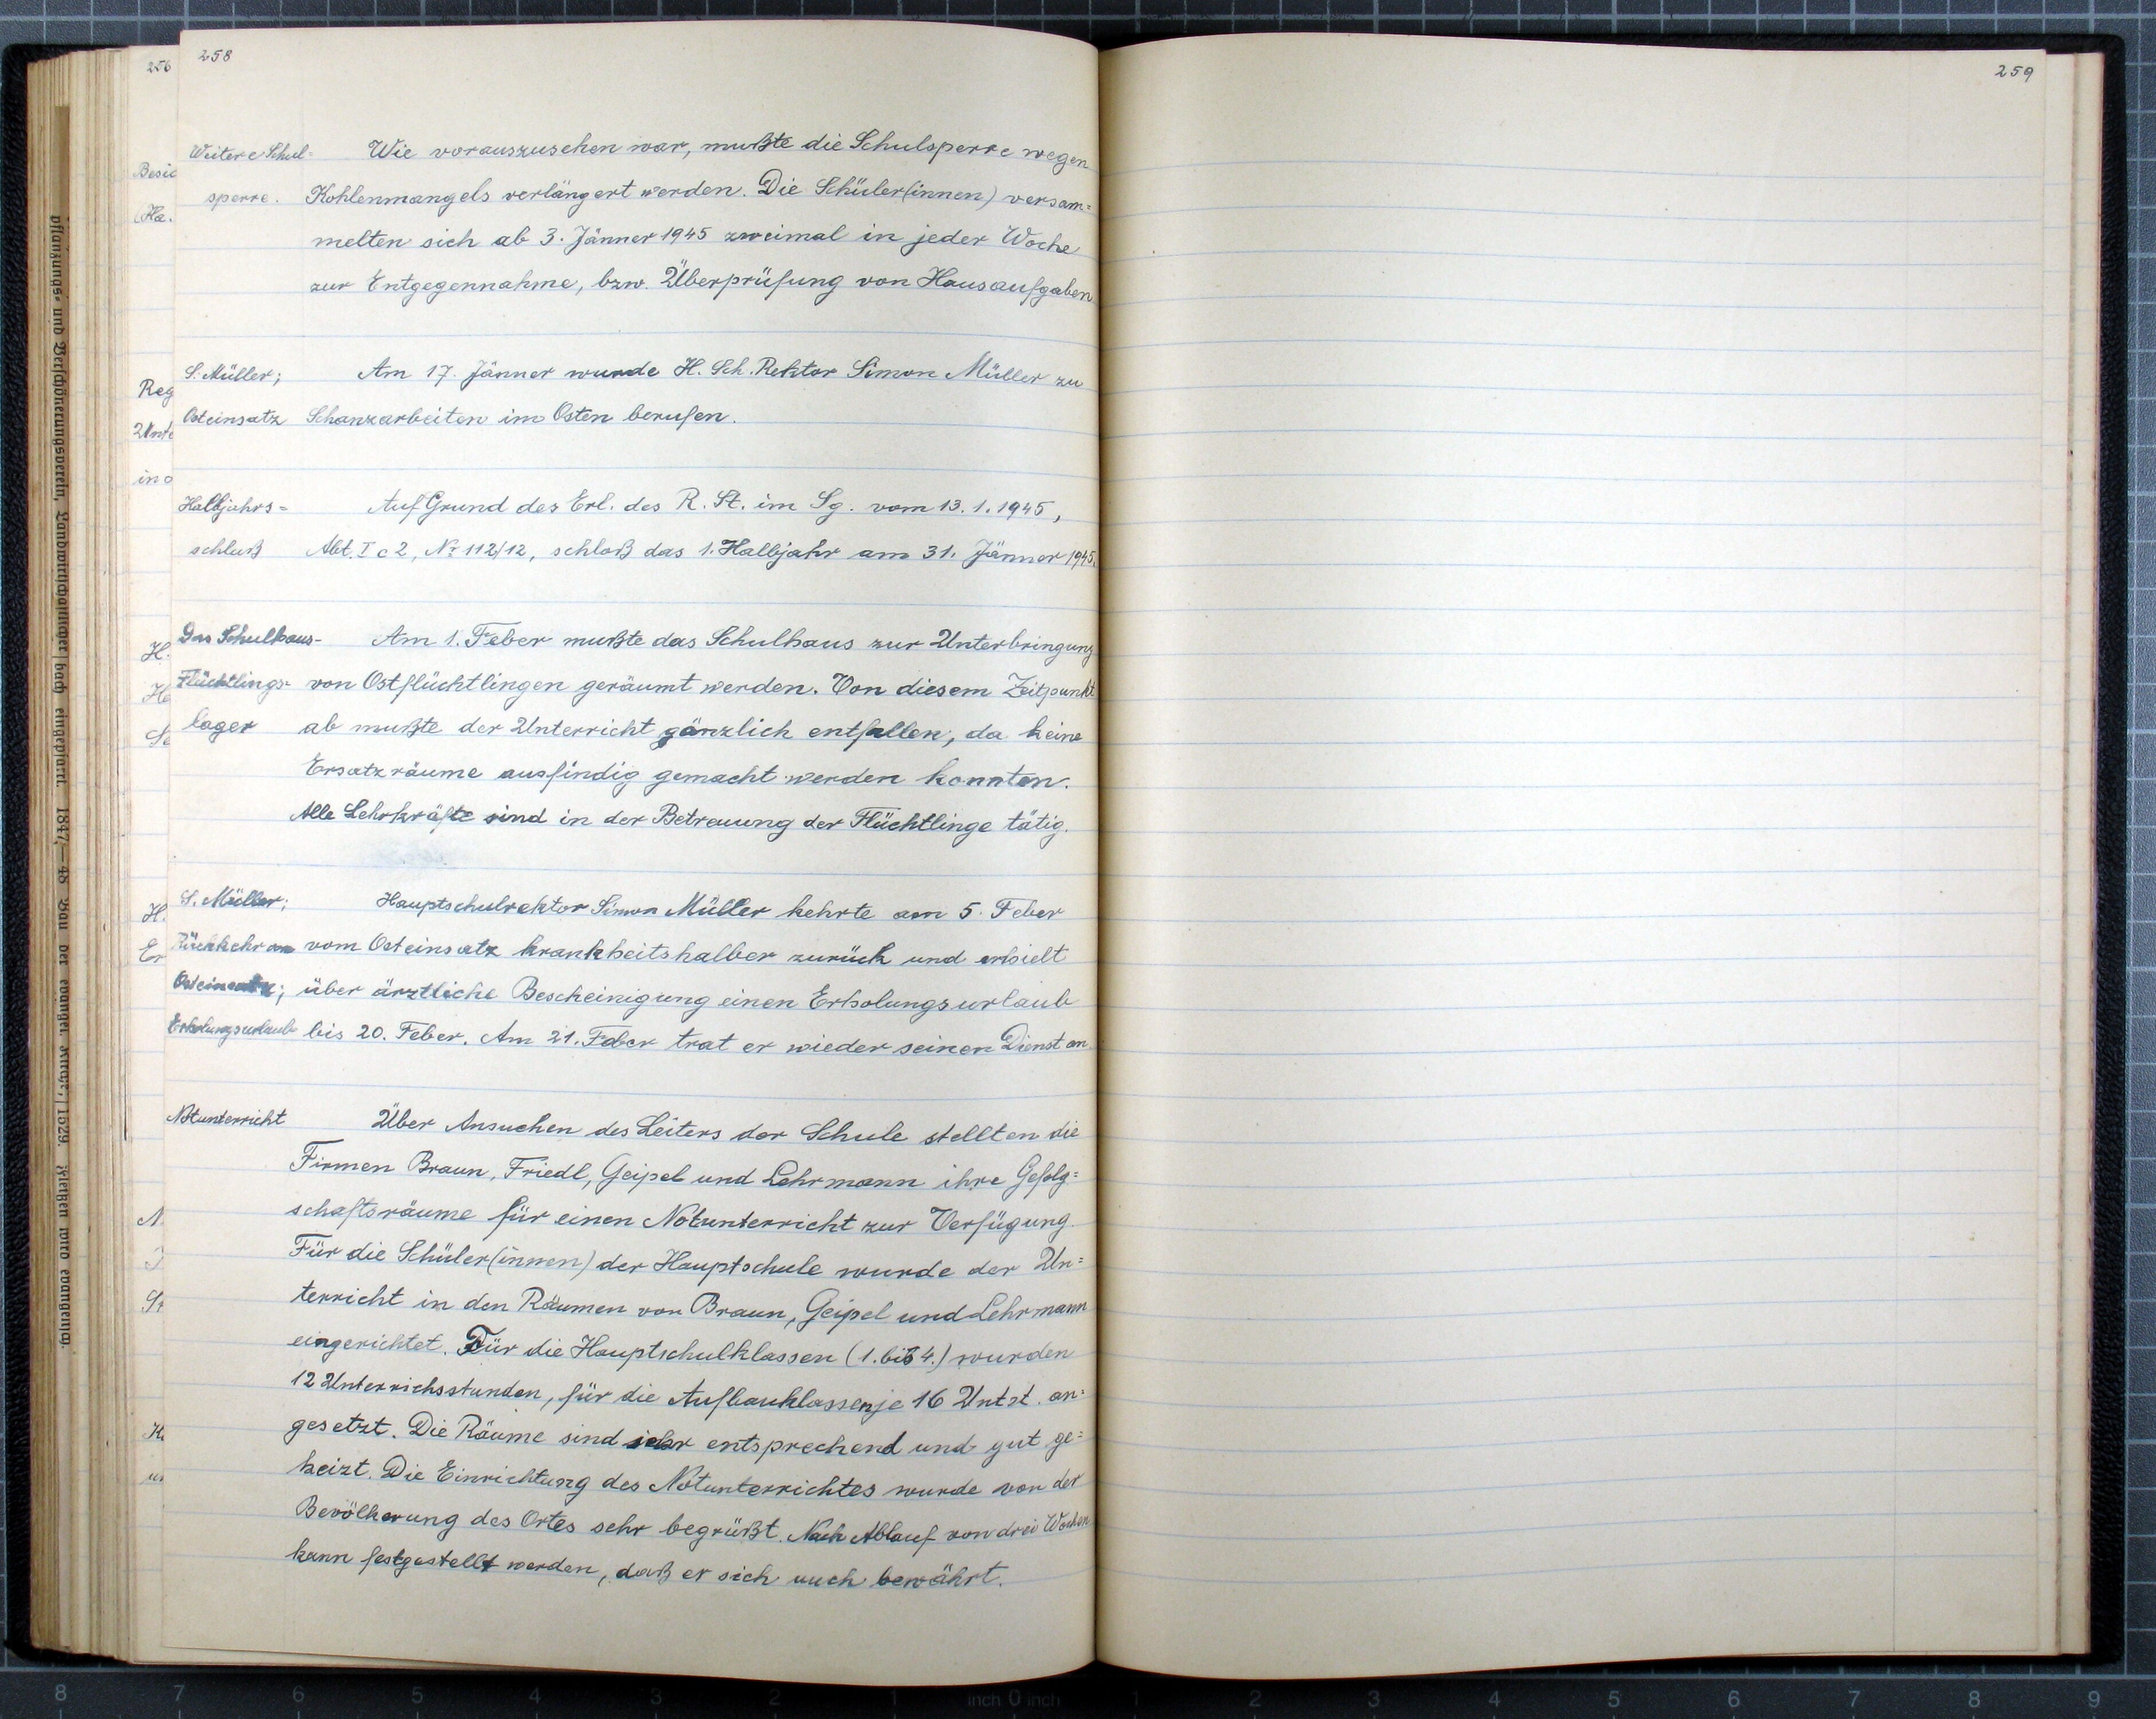 258
256
Weitere Schul= Wie vorauszusehen war, mußte die Schulsperre wegen
sperre. Kohlenmangels verlängert werden. Die Schüler(innen) versam=
melten sich ab 3. Jänner 1945 zweimal in jeder Woche
zur Entgegennahme, bzw. Überprüfung von Hausaufgaben
S. Müller; Am 17. Jänner wurde H. Sch. Rektor Simon Müller zu
Osteinsatz Schanzarbeiten im Osten berufen.
Halbjahrs= Auf Grund des Erl. des R. St. im Sg. vom 13. 1. 1945,
schluß Abt. I c 2, Nr 112/12, schloß das 1. Halbjahr am 31. Jänner 1945.
Das Schulhaus- Am 1. Feber mußte das Schulhaus zur Unterbringung
Flüchtlings- von Ostflüchtlingen geräumt werden. Von diesem Zeitpunkt
lager ab mußte der Unterricht gänzlich entfallen, da keine
Ersatzräume ausfindig gemacht werden konnten.
Alle Lehrkräfte sind in der Betreuung der Flüchtlinge tätig.
S. Müller; Hauptschulrektor Simon Müller kehrte am 5. Feber
Rückkehr vom Osteinsatz krankheitshalber zurück und erhielt
Osteinsatz; über ärztliche Bescheinigung einen Erholungsurlaub
Erholungsurlaub bis 20. Feber. Am 21. Feber trat er wieder seinen Dienst an
Notunterricht Über Ansuchen des Leiters der Schule stellten die
Firmen Braun, Friedl, Geipel und Lehrmann ihre Gefolg=
schaftsräume für einen Notunterricht zur Verfügung.
Für die Schüler(innen) der Hauptschule wurde der Un=
terricht in den Räumen von Braun, Geipel und Lehrmann
eingerichtet. Für die Hauptschulklassen (1. bis 4.) wurden
12 Unterrichsstunden, für die Aufbauklassen je 16 Untst. an=
gesetzt. Die Räume sind sehr entsprechend und gut ge=
heizt. Die Einrichtung des Notunterrichtes wurde von der
Bevölkerung des Ortes sehr begrüßt. Nach Ablauf von drei Wochen
kann festgestellt werden, daß er sich auch bewährt.
259
8 7 6 5 4 3 2 1 inch 0 inch 1 2 3 4 5 6 7 8 9